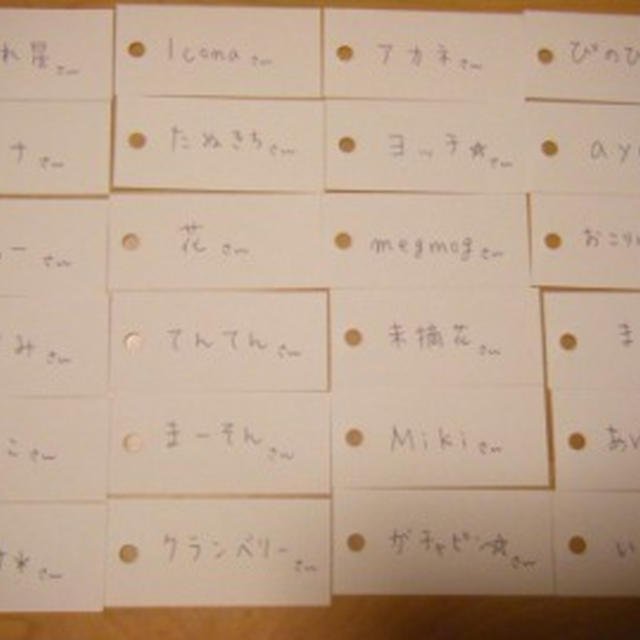 れ星さん
Icona さん
アカネさん
ぴのぴ
ナさん
たぬきちさん
ヨッチ☆さん
ay
ーさん
花さん
megmogさん
おこり
みさん
てんてんさん
末摘花さん
ま
こさん
まーそんさん
Mikiさん
あい
*さん
クランベリーさん
ガチャピン☆さん
い